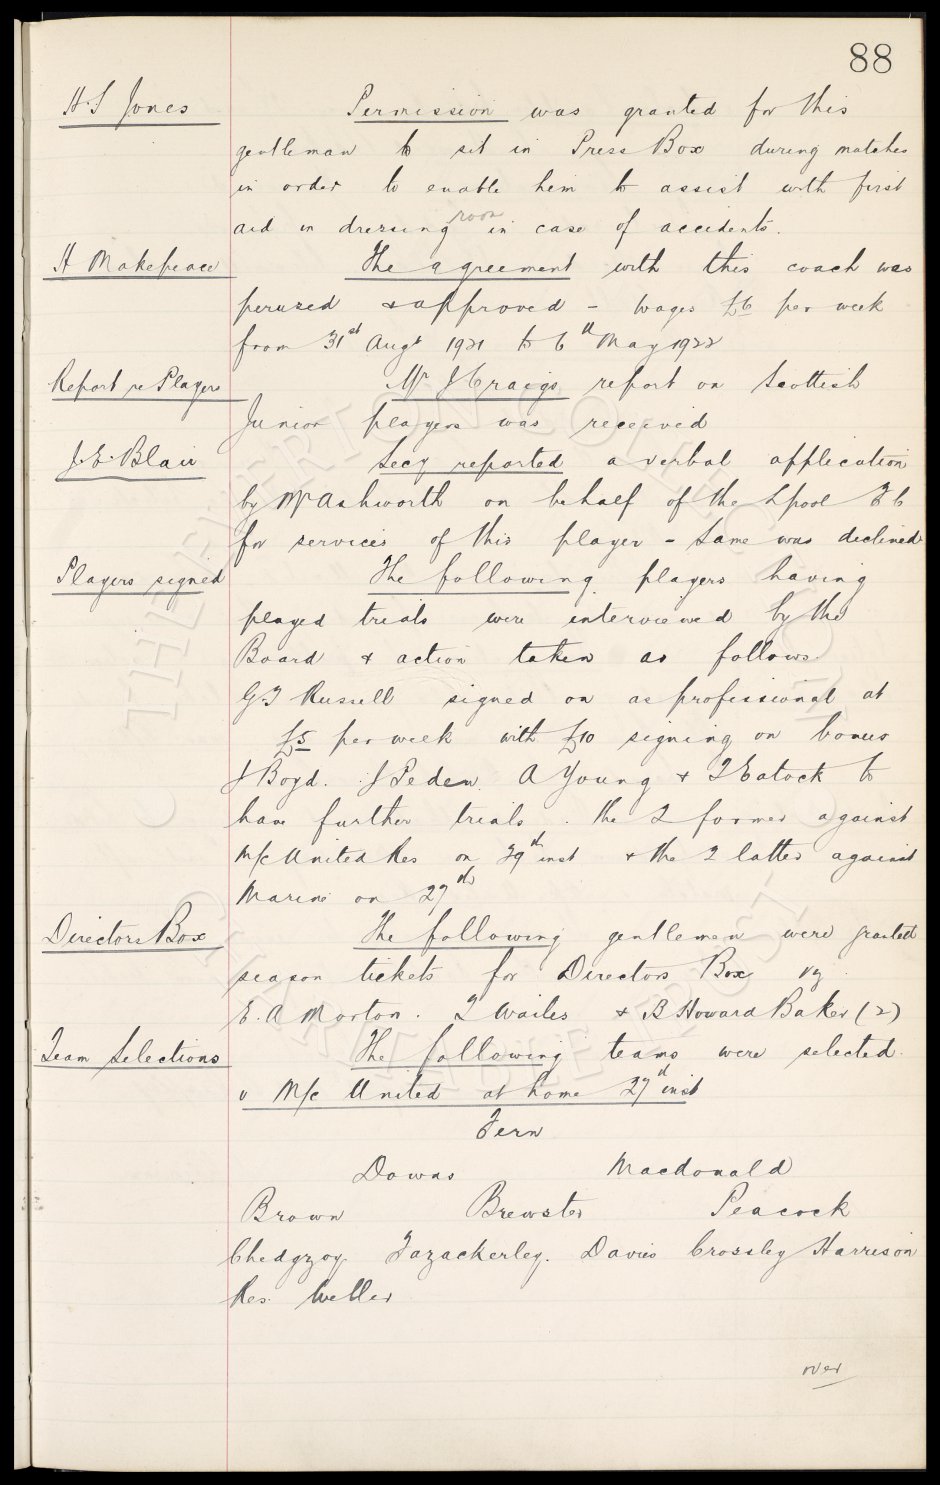 88
H S Jones Permission was granted for this
gentleman to sit in Press Box during matches
in order to enable him to assist with first
aid in dressing room in case of accidents.
H Makepeace The agreement with this coach was
perused & approved – Wages £6 per week
from 31st Augt 1921 to 6th May 1922
Report re Players Mr J Craigs report on Scottish
Junior players was received
J.E. Blair Secy reported a verbal application
by Mr Ashworth on behalf of the Lpool F C
for services of this player – Same was declined
Players signed The following players having
played trials were interviewed by the
Board & action taken as follows.
G F Russell signed on as professional at
£5 per week with £10 signing on bonus
J Boyd. J Peden. A Young & F Eatock to
have further trials. the 2 former against
M/c United Res on 29th inst & the 2 latter against
Marine on 27th
Directors Box The following gentlemen were granted
season tickets for Directors Box vz
E. A Morton. T Wailes & B Howard Baker (2)
Team Selections The following teams were selected.
v M/c United at home 27th inst
Fern
Downs Macdonald
Brown Brewster Peacock
Chedgzoy. Fazackerley. Davies Crossley Harrison
Res. Weller
over
THE EVERTON COLLECTION
CHARITABLE TRUST